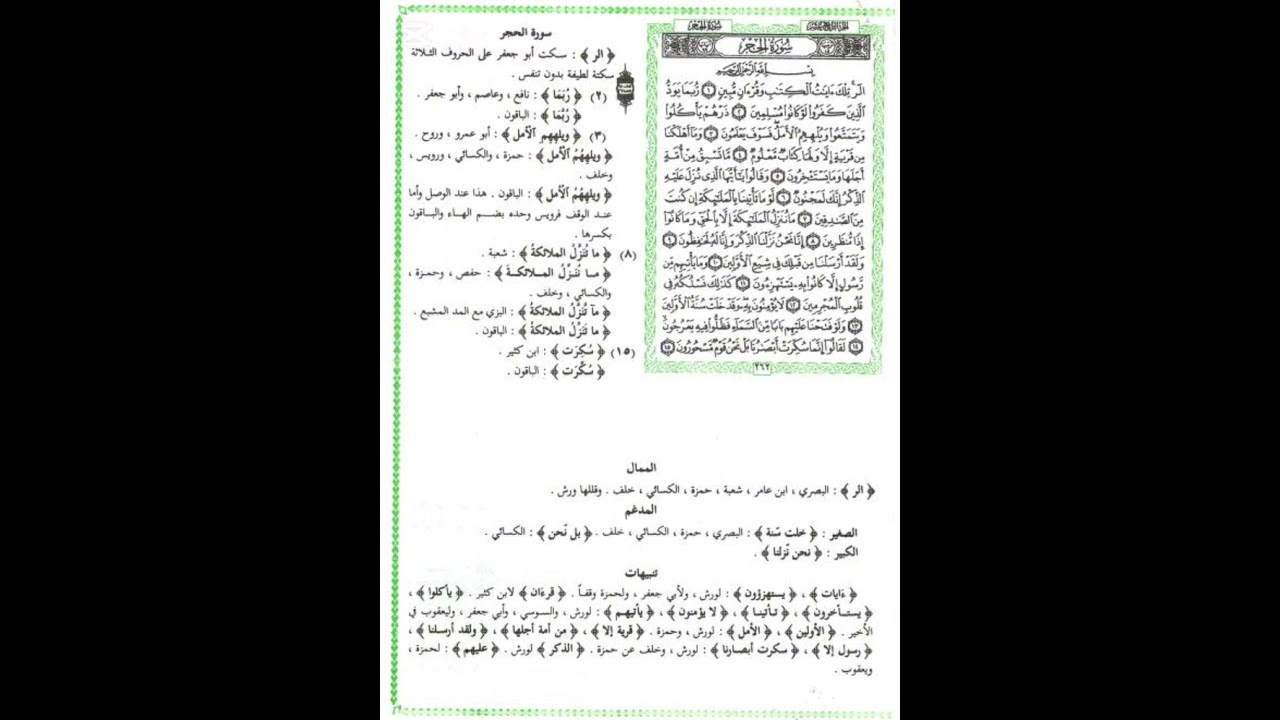 الجزء الرابع عشر
سورة الحجر
سُورَةُ الحِجْرِ
بِسْمِ اللَّهِ الرَّحْمَٰنِ الرَّحِيمِ
الٓر تِلْكَ ءَايَٰتُ ٱلْكِتَٰبِ وَقُرْءَانٍ مُّبِينٍ ١ رُّبَمَا يَوَدُّ
ٱلَّذِينَ كَفَرُوا۟ لَوْ كَانُوا۟ مُسْلِمِينَ ٢ ذَرْهُمْ يَأْكُلُوا۟
وَيَتَمَتَّعُوا۟ وَيُلْهِهِمُ ٱلْأَمَلُ فَسَوْفَ يَعْلَمُونَ ٣ وَمَآ أَهْلَكْنَا
مِن قَرْيَةٍ إِلَّا وَلَهَا كِتَابٌ مَّعْلُومٌ ٤ مَّا تَسْبِقُ مِنْ أُمَّةٍ
أَجَلَهَا وَمَا يَسْتَـْٔخِرُونَ ٥ وَقَالُوا۟ يَٰٓأَيُّهَا ٱلَّذِى نُزِّلَ عَلَيْهِ
ٱلذِّكْرُ إِنَّكَ لَمَجْنُونٌ ٦ لَّوْ مَا تَأْتِينَا بِٱلْمَلَٰٓئِكَةِ إِن كُنتَ
مِنَ ٱلصَّٰدِقِينَ ٧ مَا نُنَزِّلُ ٱلْمَلَٰٓئِكَةَ إِلَّا بِٱلْحَقِّ وَمَا كَانُوٓا۟
إِذًا مُّنظَرِينَ ٨ إِنَّا نَحْنُ نَزَّلْنَا ٱلذِّكْرَ وَإِنَّا لَهُۥ لَحَٰفِظُونَ ٩
وَلَقَدْ أَرْسَلْنَا مِن قَبْلِكَ فِى شِيَعِ ٱلْأَوَّلِينَ ١٠ وَمَا يَأْتِيهِم مِّن
رَّسُولٍ إِلَّا كَانُوا۟ بِهِۦ يَسْتَهْزِءُونَ ١١ كَذَٰلِكَ نَسْلُكُهُۥ فِى
قُلُوبِ ٱلْمُجْرِمِينَ ١٢ لَا يُؤْمِنُونَ بِهِۦ وَقَدْ خَلَتْ سُنَّةُ ٱلْأَوَّلِينَ
١٣ وَلَوْ فَتَحْنَا عَلَيْهِم بَابًا مِّنَ ٱلسَّمَآءِ فَظَلُّوا۟ فِيهِ يَعْرُجُونَ
١٤ لَقَالُوٓا۟ إِنَّمَا سُكِّرَتْ أَبْصَٰرُنَا بَلْ نَحْنُ قَوْمٌ مَّسْحُورُونَ ١٥
٢٦٢
سورة الحجر
﴿ الر ﴾ : سكت أبو جعفر على الحروف الثلاثة
سكتة لطيفة بدون تنفس .
(٢) ﴿ رُبَمَا ﴾ : نافع ، وعاصم ، وأبو جعفر .
﴿ رُبَّمَا ﴾ : الباقون .
(٣) ﴿ ويلهِهِمِ ٱلأمل ﴾ : أبو عمرو ، وروح .
﴿ ويلهِهُمُ ٱلأمل ﴾ : حمزة ، والكسائي ، ورويس ،
وخلف .
﴿ ويلهِهِمُ ٱلأمل ﴾ : الباقون . هذا عند الوصل وأما
عند الوقف فرويس وحده بضم الهاء والباقون
بكسرها .
(٨) ﴿ ما تُنَزَّلُ الملائكةُ ﴾ : شعبة .
﴿ ما نُنَزِّلُ الملائكةَ ﴾ : حفص ، وحمزة ،
والكسائي ، وخلف .
﴿ مآ تَّنَزَّلُ الملائكةُ ﴾ : البزي مع المد المشبع .
﴿ ما تَنَزَّلُ الملائكةُ ﴾ : الباقون .
(١٥) ﴿ سُكِرَت ﴾ : ابن كثير .
﴿ سُكِّرَت ﴾ : الباقون .
الممال
﴿ الر ﴾ : البصري ، ابن عامر ، شعبة ، حمزة ، الكسائي ، خلف . وقللها ورش .
المدغم
الصغير : ﴿ خلت سّنة ﴾ : البصري ، حمزة ، الكسائي ، خلف . ﴿ بل نّحن ﴾ : الكسائي .
الكبير : ﴿ نحن نّزلنا ﴾ .
تنبيهات
﴿ ءايات ﴾ ، ﴿ يستهزؤون ﴾ : لورش ، ولأبي جعفر ، ولحمزة وقفاً . ﴿ قرءان ﴾ لابن كثير . ﴿ يأكلوا ﴾ ،
﴿ يستأخرون ﴾ ، ﴿ تأتينا ﴾ ، ﴿ لا يؤمنون ﴾ ، ﴿ يأتيهم ﴾ : لورش ، والسوسي ، وأبي جعفر ، وليعقوب في
الأخير . ﴿ الأولين ﴾ ، ﴿ الأمل ﴾ : لورش ، وحمزة . ﴿ قرية إلا ﴾ ، ﴿ من أمة أجلها ﴾ ، ﴿ ولقد أرسلنا ﴾ ،
﴿ رسول إلا ﴾ ، ﴿ سكرت أبصارنا ﴾ : لورش ، وخلف عن حمزة . ﴿ الذكر ﴾ لورش . ﴿ عليهم ﴾ : لحمزة ،
ويعقوب .